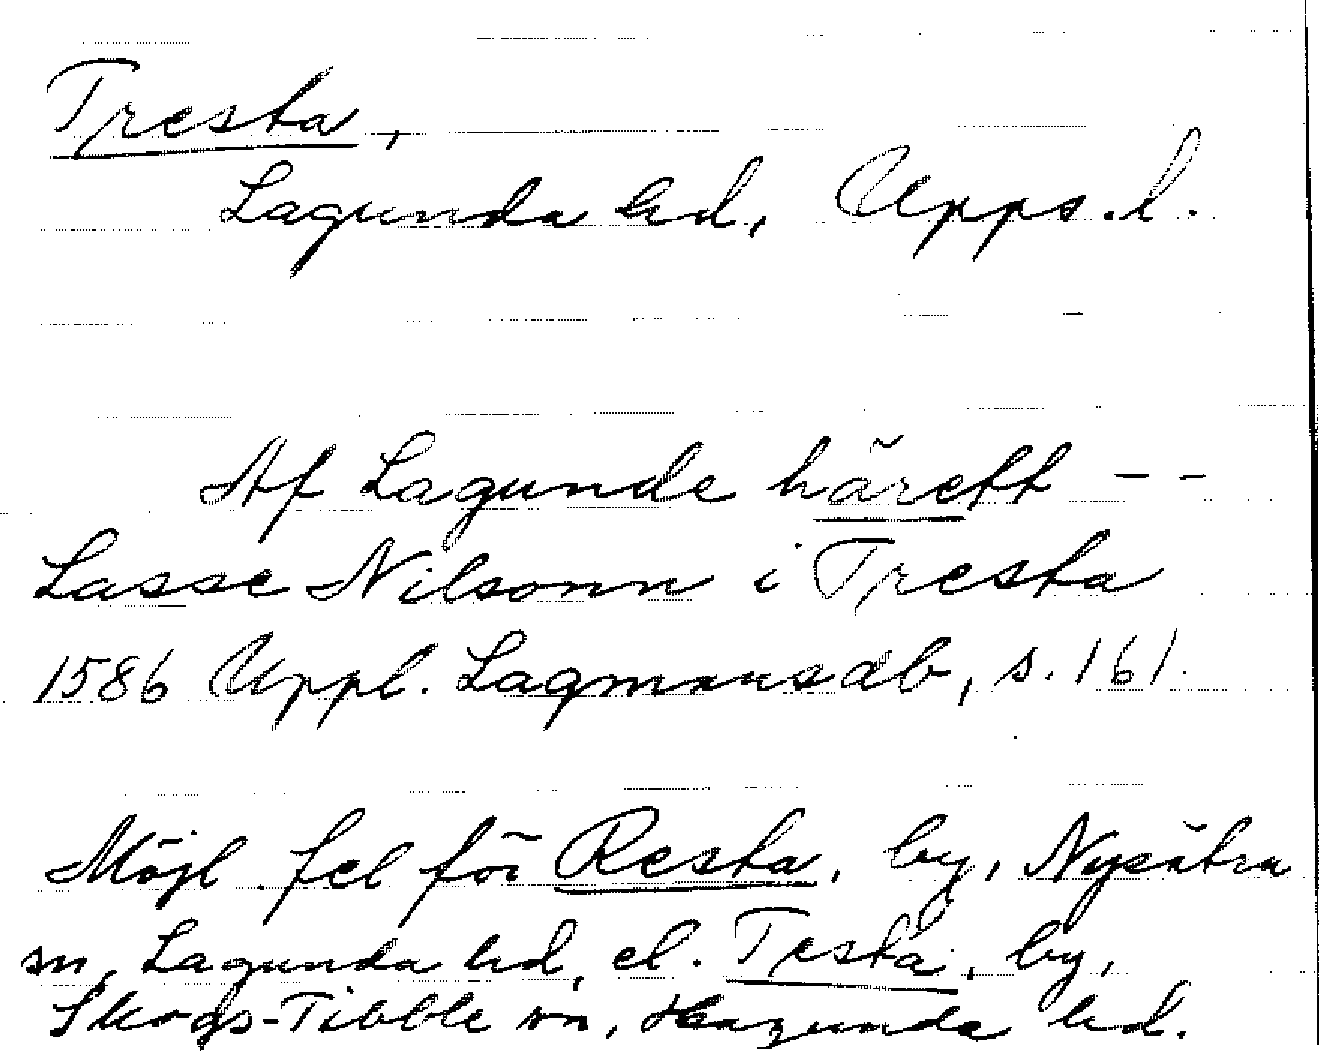 Tresta,
Lagunda hd, Upps.l.
Af Lagunde härett --
Lasse Nilsonn i Tresta
1586 Uppl. Lagmansdb, s. 161.
Möjl. fel för Resta, by, Nysätra
sn, Lagunda hd, el. Testa, by,
Skogs-Tibble sn, Hagunda hd.